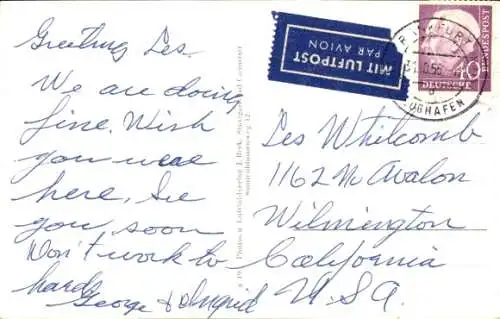 Greetings Les.
We are doing
fine. Wish
you were
here, See
you soon
Don't work to
hard
George &
MIT LUFTPOST
PAR AVION
FRANKFURT
FLUGHAFEN
40
DEUTSCHE
BUNDESPOST
Les Whitcomb
1162 N. Avalon
Wilmington
California
U.S.A.